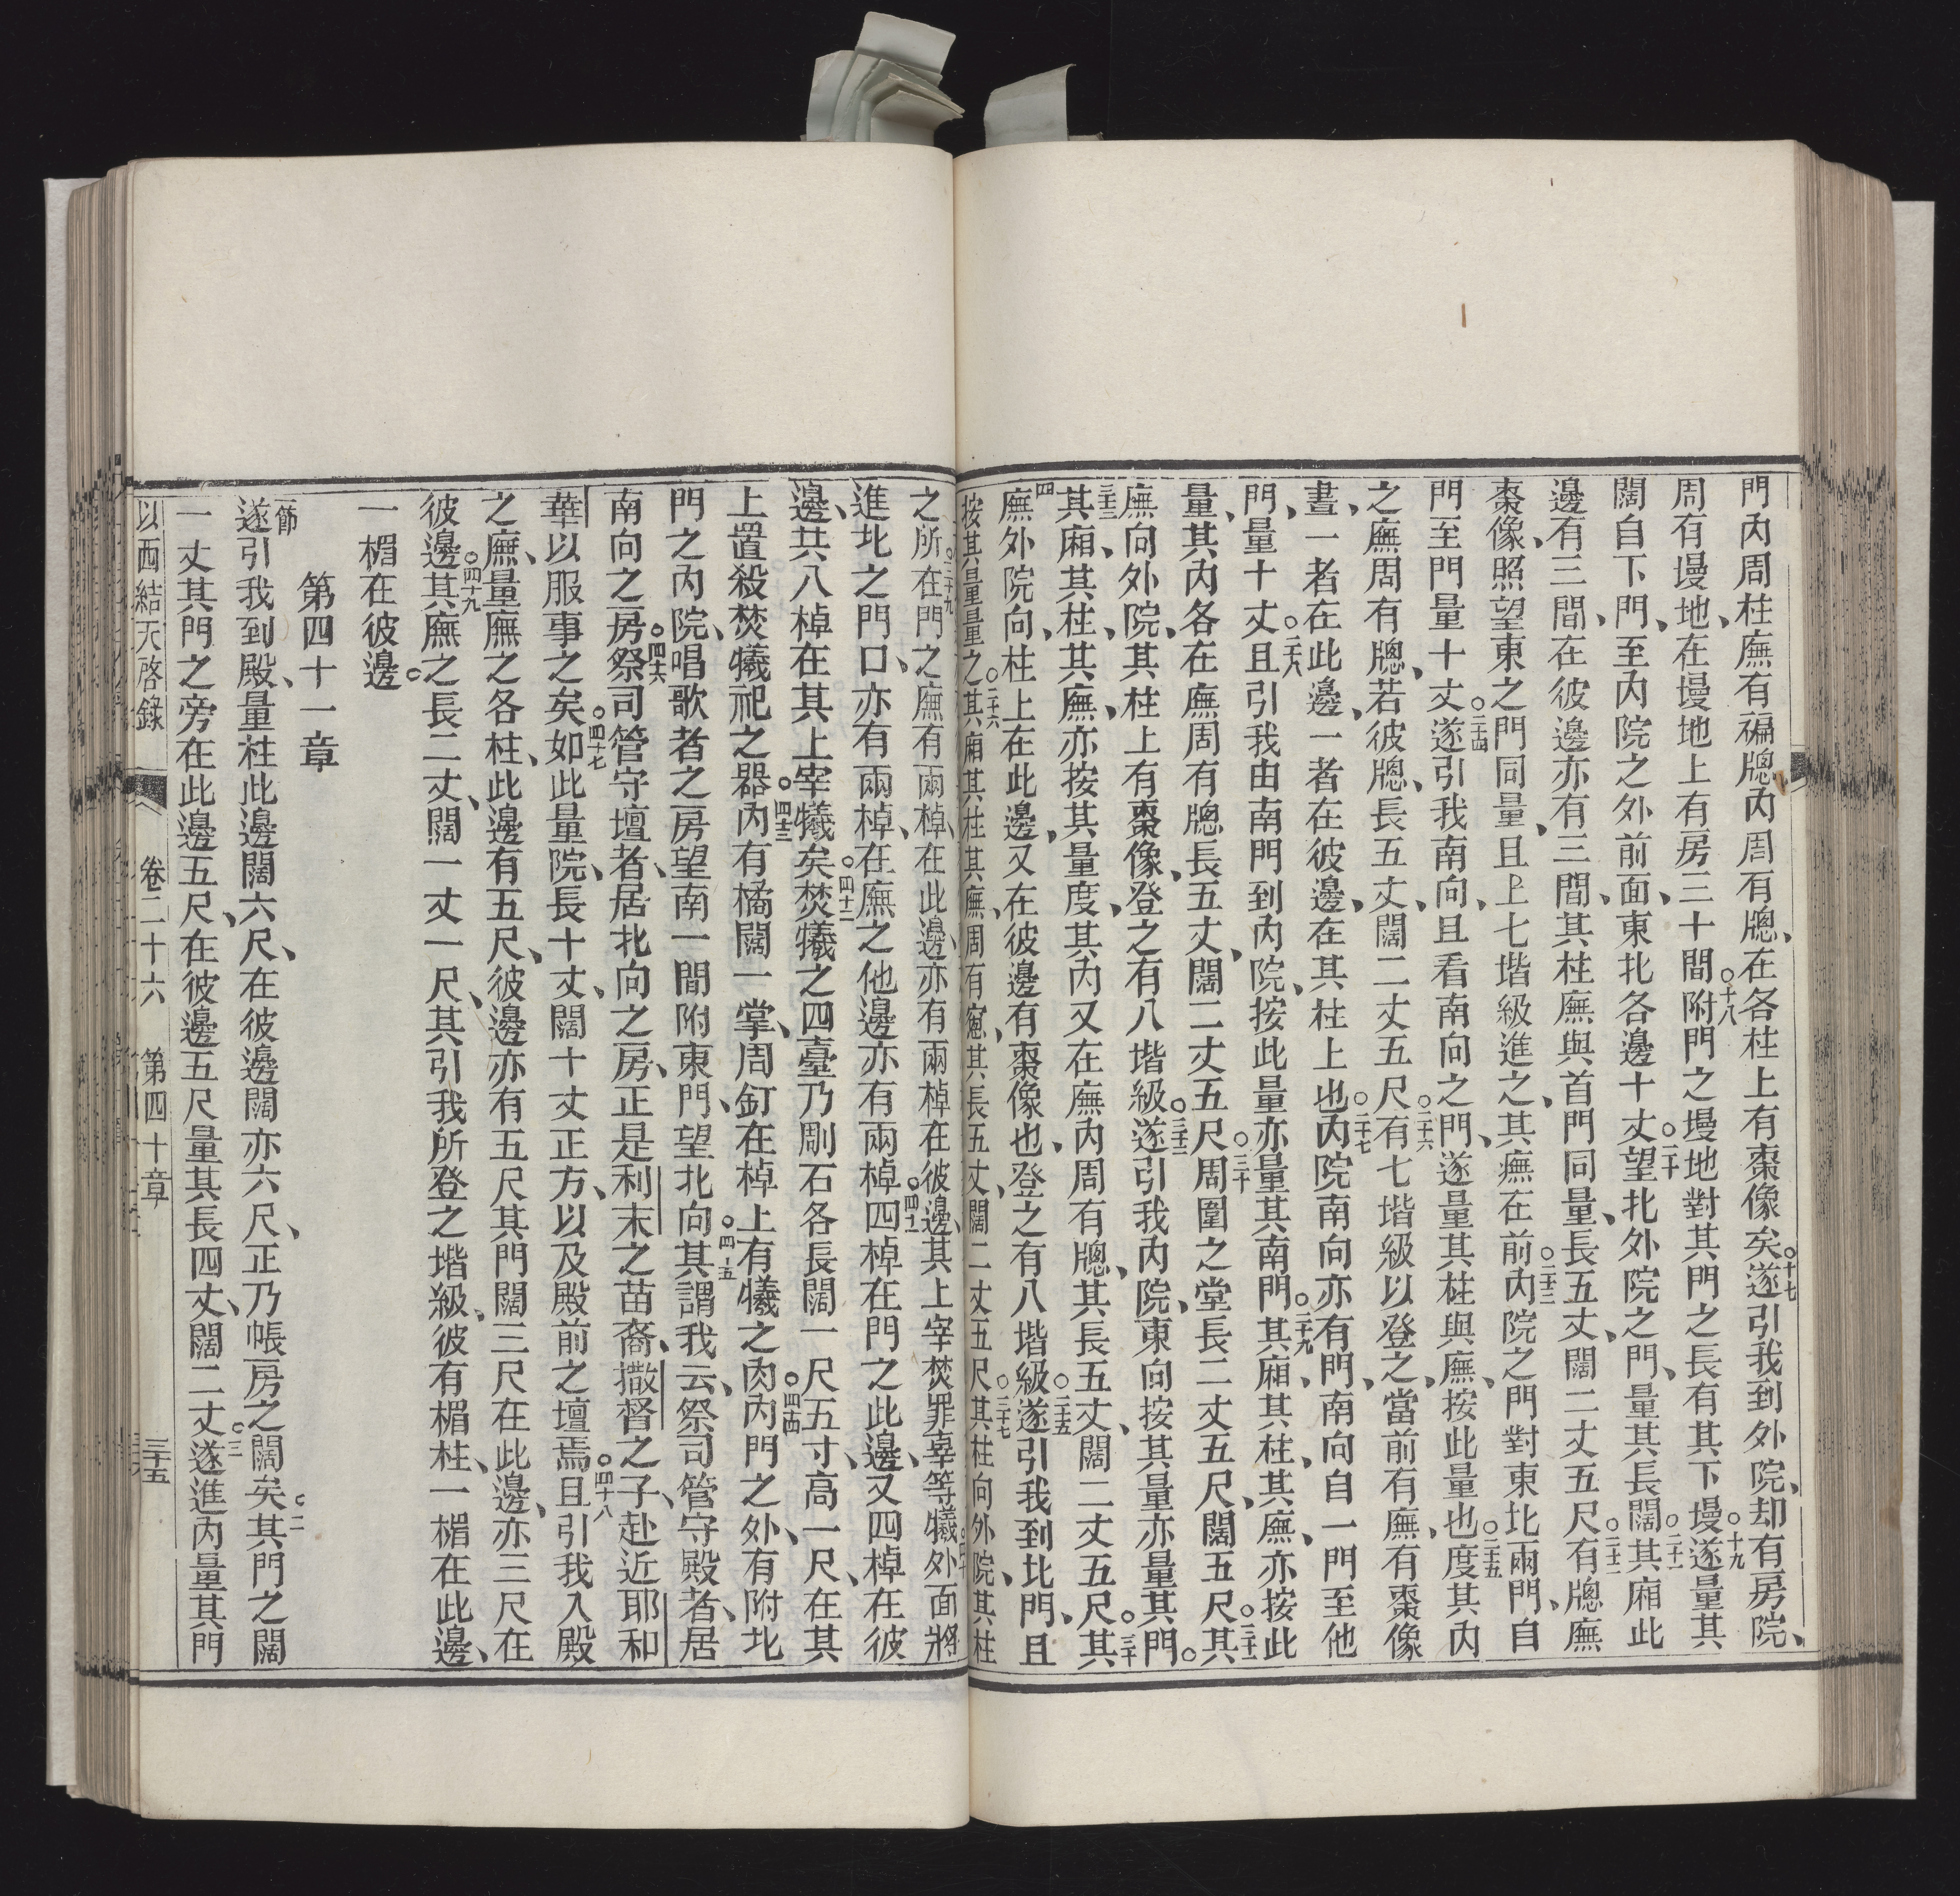 門內周柱廡有䙏牕內周有牕、在各柱上有棗像矣○十七遂引我到外院、却有房院、
周有墁地、在墁地上有房三十間○十八附門之墁地對其門之長有其下墁○十九遂量其
闊自下門、至內院之外前面、東北各邊十丈○二十望北外院之門、量其長闊○二十一其廂此
邊有三間、在彼邊亦有三間、其柱廡與首門同量、長五丈、闊二丈五尺○二十二有牕廡
棗像、照望東之門同量、且上七堦級進之、其廡在前○二十三內院之門對東北兩門、自
門至門量十丈○二十四遂引我南向、且看南向之門、遂量其柱與廡、按此量也○二十五度其內
之廡周有牕、若彼牕、長五丈、闊二丈五尺○二十六有七堦級以登之、當前有廡、有棗像
畫、一者在此邊、一者在彼邊、在其柱上也○二十七內院南向亦有門、南向自一門至他
門、量十丈○二十八且引我由南門到內院、按此量亦量其南門○二十九其廂、其柱、其廡、亦按此
量、其內各在廡周有牕長五丈、闊二丈五尺○三十周圍之堂長二丈五尺、闊五尺○三十一其
廡向外院、其柱上有棗像、登之有八堦級○三十二遂引我內院、東向按其量亦量其門。
○三十三其廂、其柱、其廡、亦按其量度、其內又在廡內周有牕、其長五丈、闊二丈五尺○三十四其
廡外院向、柱上在此邊、又在彼邊有棗像也、登之有八堦級○三十五遂引我到北門、且
按其量量之○三十六其廂其柱其廡、周有窓、其長五丈、闊二丈五尺○三十七其柱向外院、其柱
之所在門之廡○三十九有兩棹、在此邊、亦有兩棹在彼邊、其上宰焚罪辜等犧○四十外面將
進北之門口、亦有兩棹、在廡之他邊亦有兩棹○四十一四棹在門之此邊、又四棹在彼
邊、共八棹在其上宰犧矣○四十二焚犧之四臺乃剛石各長闊一尺五寸、高一尺、在其
上置殺焚犧祀之器○四十三內有橘闊一掌、周釘在棹上有犧之肉○四十四內門之外、有附北
門之內院、唱歌者之房望南一間附東門、望北向○四十五其謂我云、祭司管守殿者、居
南向之房○四十六祭司管守壇者、居北向之房、正是利未之苗裔、撒督之子、赴近耶和
華以服事之矣○四十七如此量院、長十丈、闊十丈正方、以及殿前之壇焉○四十八且引我入殿
之廡、量廡之各柱、此邊有五尺、彼邊亦有五尺其門闊三尺在此邊、亦三尺在
彼邊○四十九其廡之長二丈、闊一丈一尺、其引我所登之堦級、彼有楣柱、一楣在此邊、
一楣在彼邊。
第四十一章
一節遂引我到殿、量柱此邊闊六尺、在彼邊闊亦六尺、正乃帳房之闊矣○二其門之闊
一丈其門之旁在此邊五尺、在彼邊五尺量其長四丈、闊二丈○三遂進內量其門
以西結天啓錄 卷二十六 第四十章 三十五